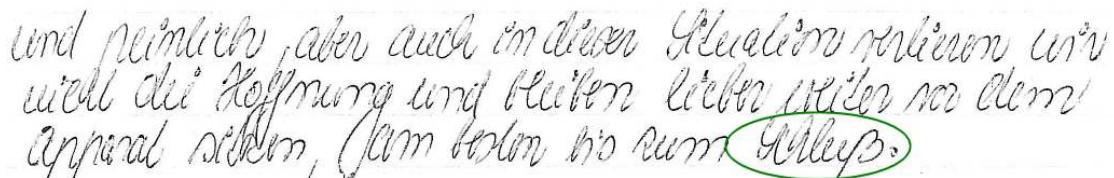 und peinlich, aber auch in dieser Situation verlieren wir
nicht die Hoffnung und bleiben lieber weiter vor dem
Apparat sitzen, (am besten bis zum Schluß.